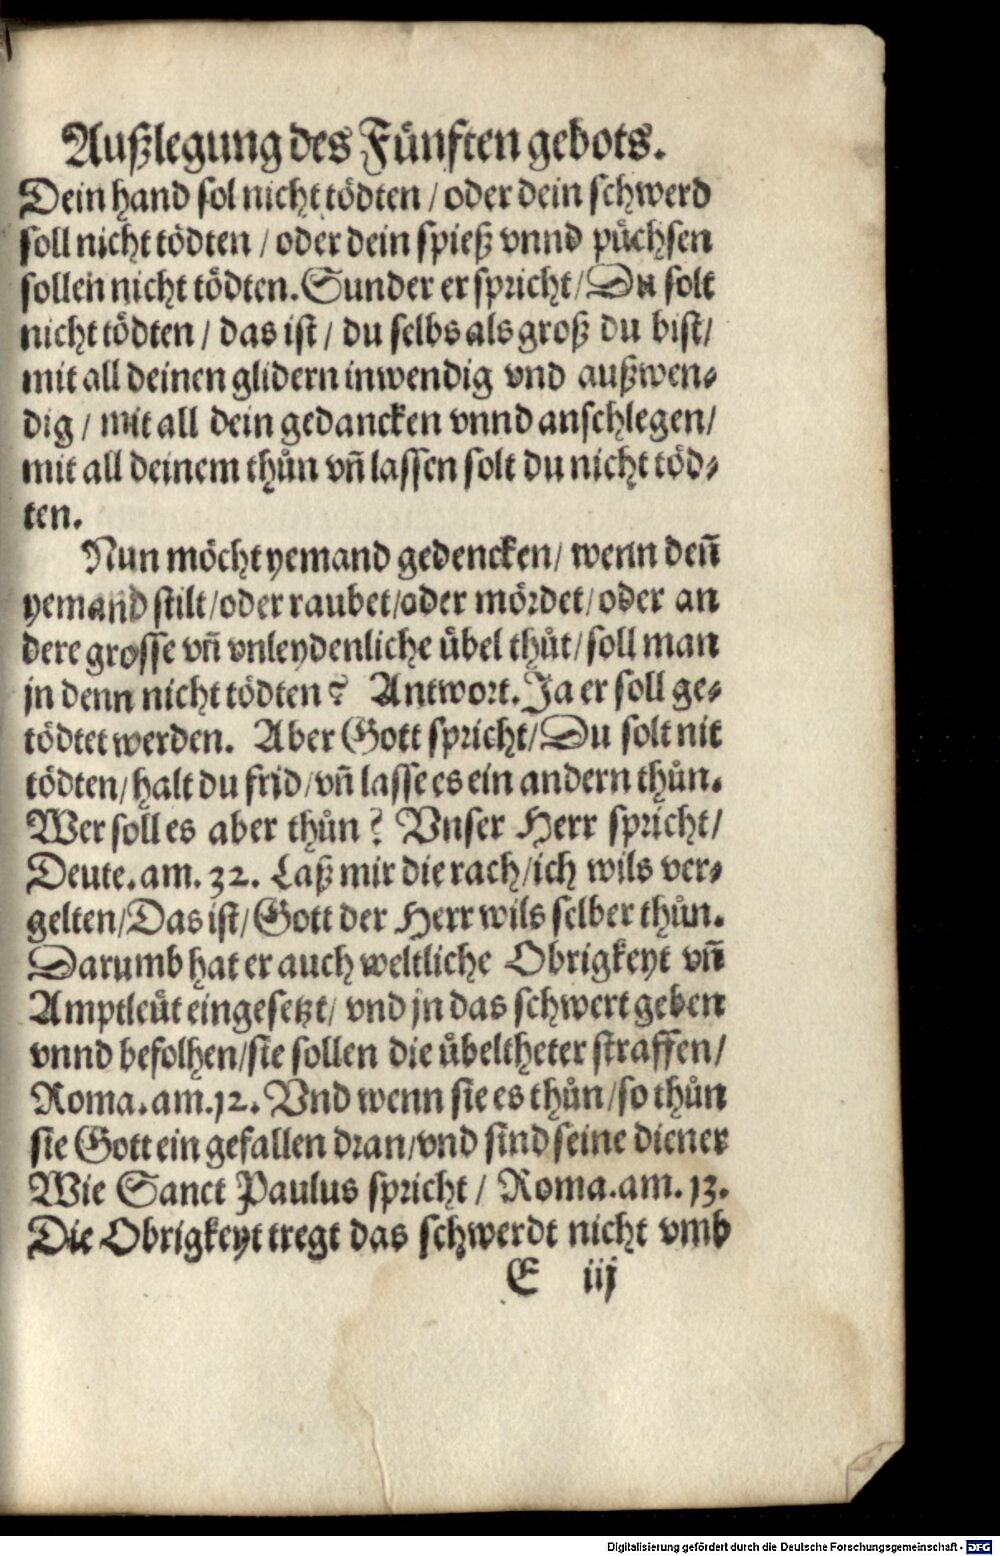 Außlegung des Fünften gebots.
Dein hand sol nicht tödten / oder dein schwerd
soll nicht tödten / oder dein spieß vnnd püchsen
sollen nicht tödten. Sunder er spricht / Du solt
nicht tödten / das ist / du selbs als groß du bist /
mit all deinen glidern inwendig vnd außwen⸗
dig / mit all dein gedancken vnnd anschlegen /
mit all deinem thůn vñ lassen solt du nicht töd⸗
ten.
Nun möcht yemand gedencken / wenn deñ
yemand stilt / oder raubet / oder mördet / oder an
dere grosse vñ vnleydenliche übel thůt / soll man
jn denn nicht tödten? Antwort. Ja er soll ge⸗
tödtet werden. Aber Gott spricht / Du solt nit
tödten / halt du frid / vñ lasse es ein andern thůn.
Wer soll es aber thůn? Vnser Herr spricht /
Deute. am. 32. Laß mir die rach / ich wils ver⸗
gelten / Das ist / Gott der Herr wils selber thůn.
Darumb hat er auch weltliche Obrigkeyt vñ
Amptleüt eingesetzt / vnd jn das schwert geben
vnnd befolhen / sie sollen die übeltheter straffen /
Roma. am. 12. Vnd wenn sie es thůn / so thůn
sie Gott ein gefallen dran / vnd sind seine diener
Wie Sanct Paulus spricht / Roma. am. 13.
Die Obrigkeyt tregt das schwerdt nicht vmb
E iij
Digitalisierung gefördert durch die Deutsche Forschungsgemeinschaft - DFG